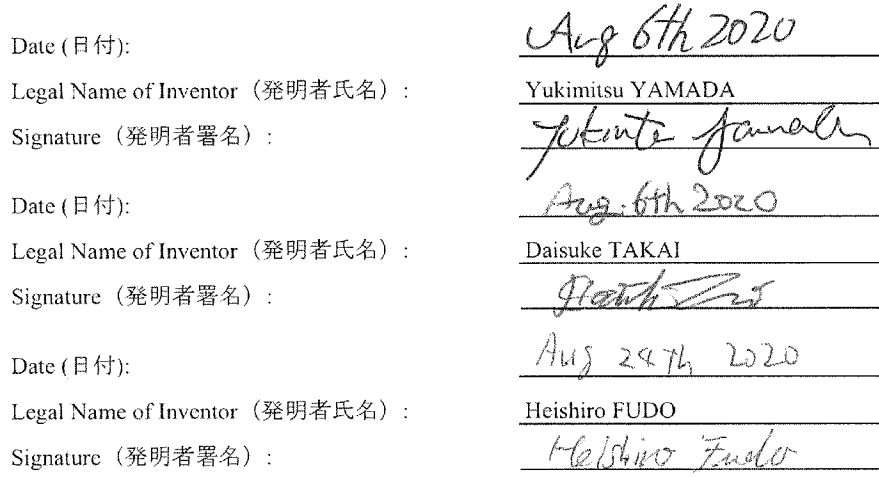 Date (日付): Aug 6th 2020
Legal Name of Inventor（発明者氏名）: Yukimitsu YAMADA
Signature（発明者署名）:
Date (日付): Aug. 6th 2020
Legal Name of Inventor（発明者氏名）: Daisuke TAKAI
Signature（発明者署名）:
Date (日付): Aug 24th 2020
Legal Name of Inventor（発明者氏名）: Heishiro FUDO
Signature（発明者署名）: Heishiro Fudo